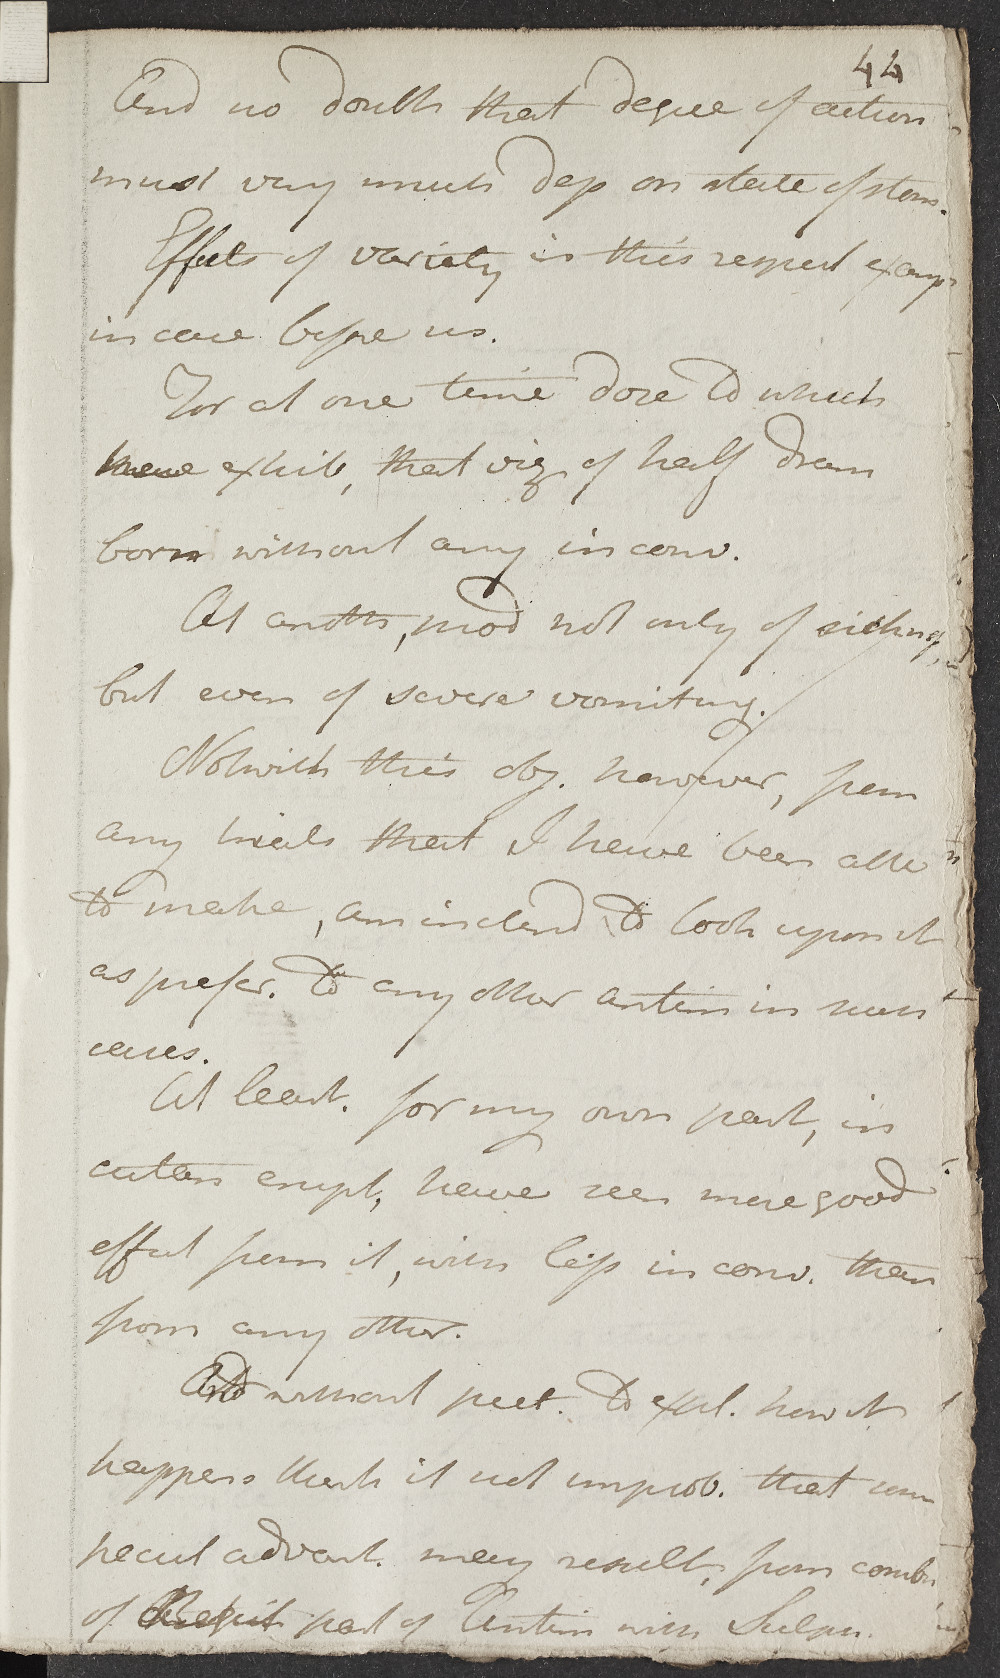 44
And no doubt that degree of action
must very much dep on state of stom.
Effects of variety in this respect examp
in case before us.
For at one time dose to which
have exhib, that viz of half dram
born without any inconv.
At anoth, prod not only of sickng,
but even of severe vomiting.
Notwith this obj. however, from
any trials that I have been able
to make, am inclend to look upon it
as prefer. to any other antim in most
cases.
At least. for my own part, in
cutan erupt, have seen more good
effect from it, with less inconv. than
from any other.
And without pret. to expl. how it
happens think it not improb. that som
pecul advant. may result, from combin
of part of Antim with Sulph.